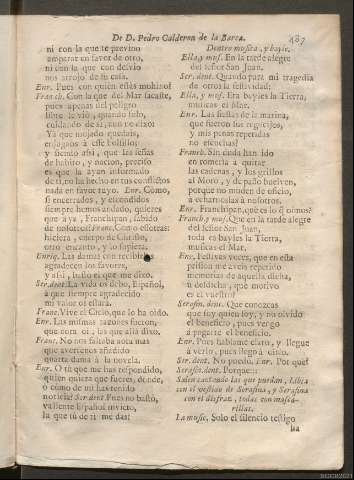 De D. Pedro Calderon de la Barca.
487
ni con la que te previno
amparar un favor de otro,
ni con la que con desvio
nos arrojó de su casa.
Enr. Pues con quien estás mohino?
Franch. Con la que del Mar sacaste,
pues apenas del peligro
libre se viò, quando solo,
cuidando de
Ya que mojado quedais,
enjugaos à este bolsillo;
y siento assi, que las señas
de habito, y nacion, preciso
es que la ayan informado
de ti, no ha hecho en tus conflictos
nada en favor tuyo. Enr. Como,
si encerrados, y escondidos
siempre hemos andado, quieres
que aya, Franchipan, sabido
de nosotros? Franc. Como estotras:
hiciera, cuerpo de Christo,
otro encanto, y lo supiera.
Enriq. Las damas con recibir
agradecen los favores,
y assi, hasto es que me dixo.
Ser.dent. La vida os debo, Español,
à que siempre agradecido
mi valor os estarà.
Franc. Vive el Cielo, que lo ha oìdo.
Enr. Las mismas razones fueron,
que aora oì, las que allà dixo.
Franc. No nos faltaba aora mas
que averiguar añadido
quarta dama à la novela.
Enr. O tù que me has respondido,
quien quiera que fueres, dònde,
ò còmo de mi has tenido
noticia? Ser.dent. Pues no bastò,
valiente Español invicto,
la que tù de ti me das?
Dentro musica, y bayle.
Ella, y mus. En la tarde alegre
del señor San Juan.
Ser. dent. Quando para mi tragedia
de otros la festividad:
Ella, y mus. Era bayles la Tierra,
musicas el Mar.
Enr. Las fiestas de la marina,
que fueron sus regocijos,
y mis penas repetidas
no escuchas?
Franch. Sin duda han ido
en romeria à quitar
las cadenas, y los grillos
al Moro, y de paso huelven,
porque no muden de oficio,
à echarnoslas à nosotros.
Enr. Franchipan, què es lo q̃ oìmos?
Franch. y mus. Que en la tarde alegre
del Señor San Juan,
toda es bayles la Tierra,
musicas el Mar.
Enr. Festivas voces, que en esta
prision me aveis repetido
memorias de aquella dicha,
ù desdicha, què motivo
es el vuestro?
Serafin. dent. Que conozcas
que soy quien soy, y no olvido
el beneficio, pues vengo
à pagarte el beneficio.
Enr. Pues hablame claro, y llegue
à verte, pues llego à oìrlo.
Ser. dent. No puedo. Enr. Por què?
Serafin. dent. Porque::
Salen cantando las que puedan, Libia
con el vestido de Serafina, y Serafina
con el disfraz, todas con masca-
rillas.
La music. Solo el silencio testigo
ha